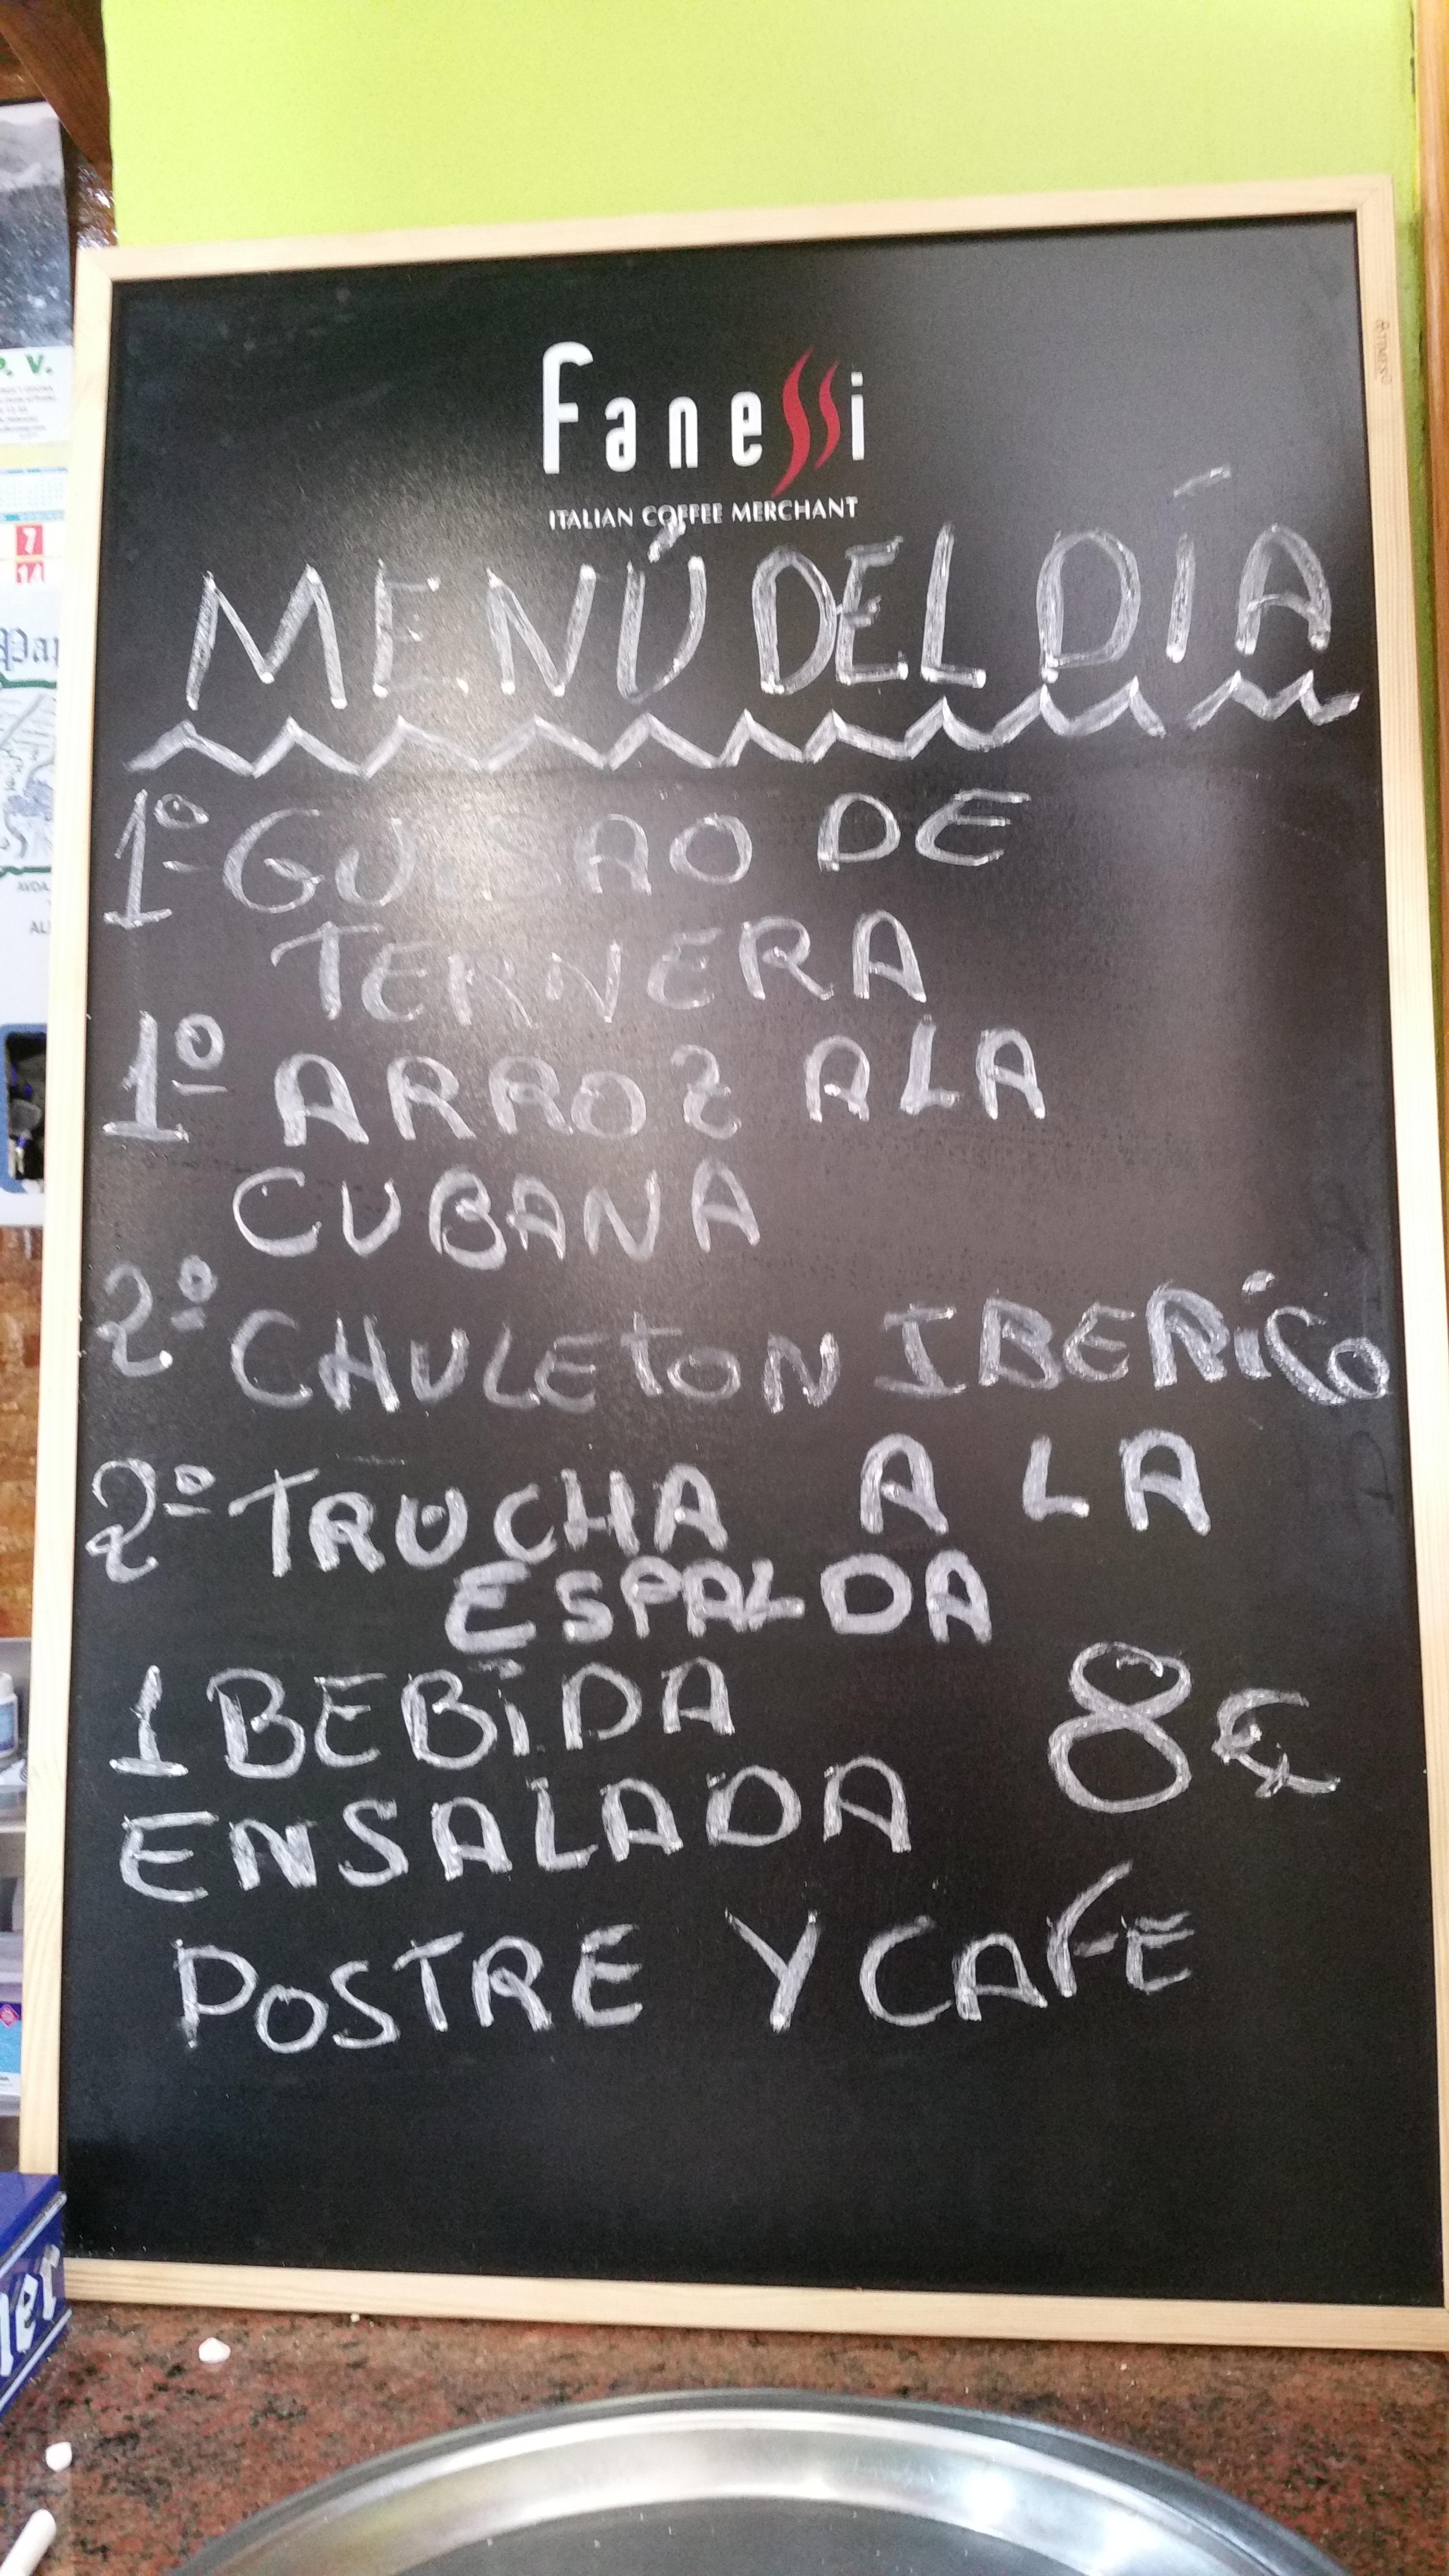 Fanessi
ITALIAN COFFEE MERCHANT
MENÚ DEL DÍA
1º GUISAO DE
TERNERA
1º ARROZ A LA
CUBANA
2º CHULETON IBERICO
2º TRUCHA A LA
ESPALDA
1 BEBIDA
8€
ENSALADA
POSTRE Y CAFE
P. V.
7
14
AVDA.